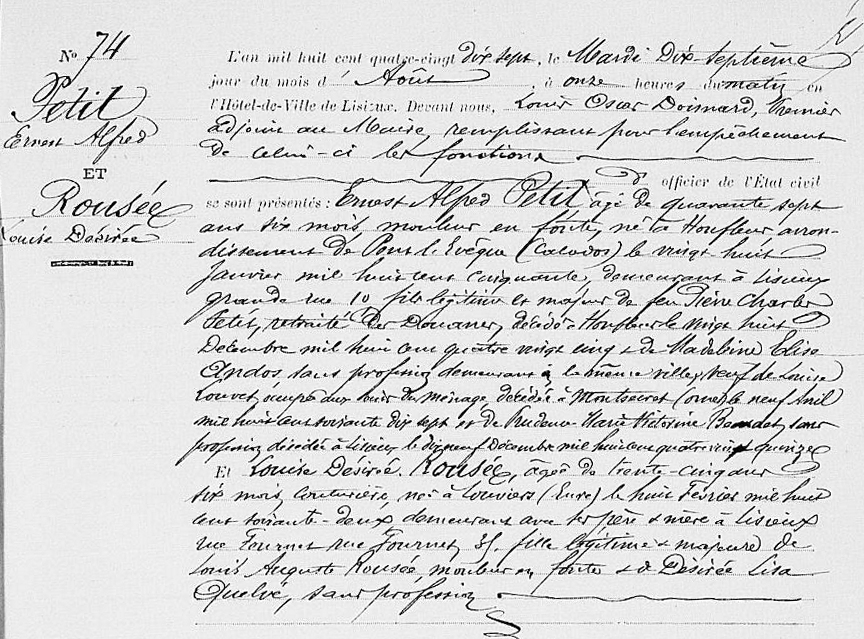 No 74
Petit
Ernest Alfred
ET
Rousée
Louise Désirée
L'an mil huit cent quatre-vingt dix sept, le Mardi Dix-Septième
jour du mois d' Août, à onze heures du matin en
l'Hôtel-de-Ville de Lisieux. Devant nous, Louis Oscar Doisnard, Premier
adjoint au Maire, remplissant pour l'empêchement
de celui-ci les fonctions
d'officier de l'État civil
se sont présentés : Ernest Alfred Petit âgé de quarante sept
ans six mois, mouleur en fonte, né à Honfleur arron-
dissement de Pont l'Evêque (Calvados) le vingt huit
Janvier mil huit cent cinquante, demeurant à Lisieux
grande rue 10 fils légitime et majeur de feu Pierre Charles
Petit, retraité des Douanes, décédé à Honfleur le vingt huit
Décembre mil huit cent quatre vingt cinq & de Madeleine Elise
Andos, sans profession demeurant à la même ville, veuf de Louise
Louvet, occupée aux soins du ménage décédée à Montsecret (orne) le neuf Avril
mil huit cent soixante dix sept et de Prudence Marie Victorine sans
profession décédée à Lisieux le dix neuf Décembre mil huit cent quatre vingt quinze
Et Louise Désirée Rousée, agée de trente-cinq ans
six mois, couturière, née à Louviers (Eure) le huit Février mil huit
cent soixante-deux, demeurant avec ses père & mère à Lisieux
rue Fournet rue Fournet, 35, fille légitime & majeure de
Louis Auguste Rousée, mouleur en fonte & de Désirée Lisa
Quelvé, sans profession